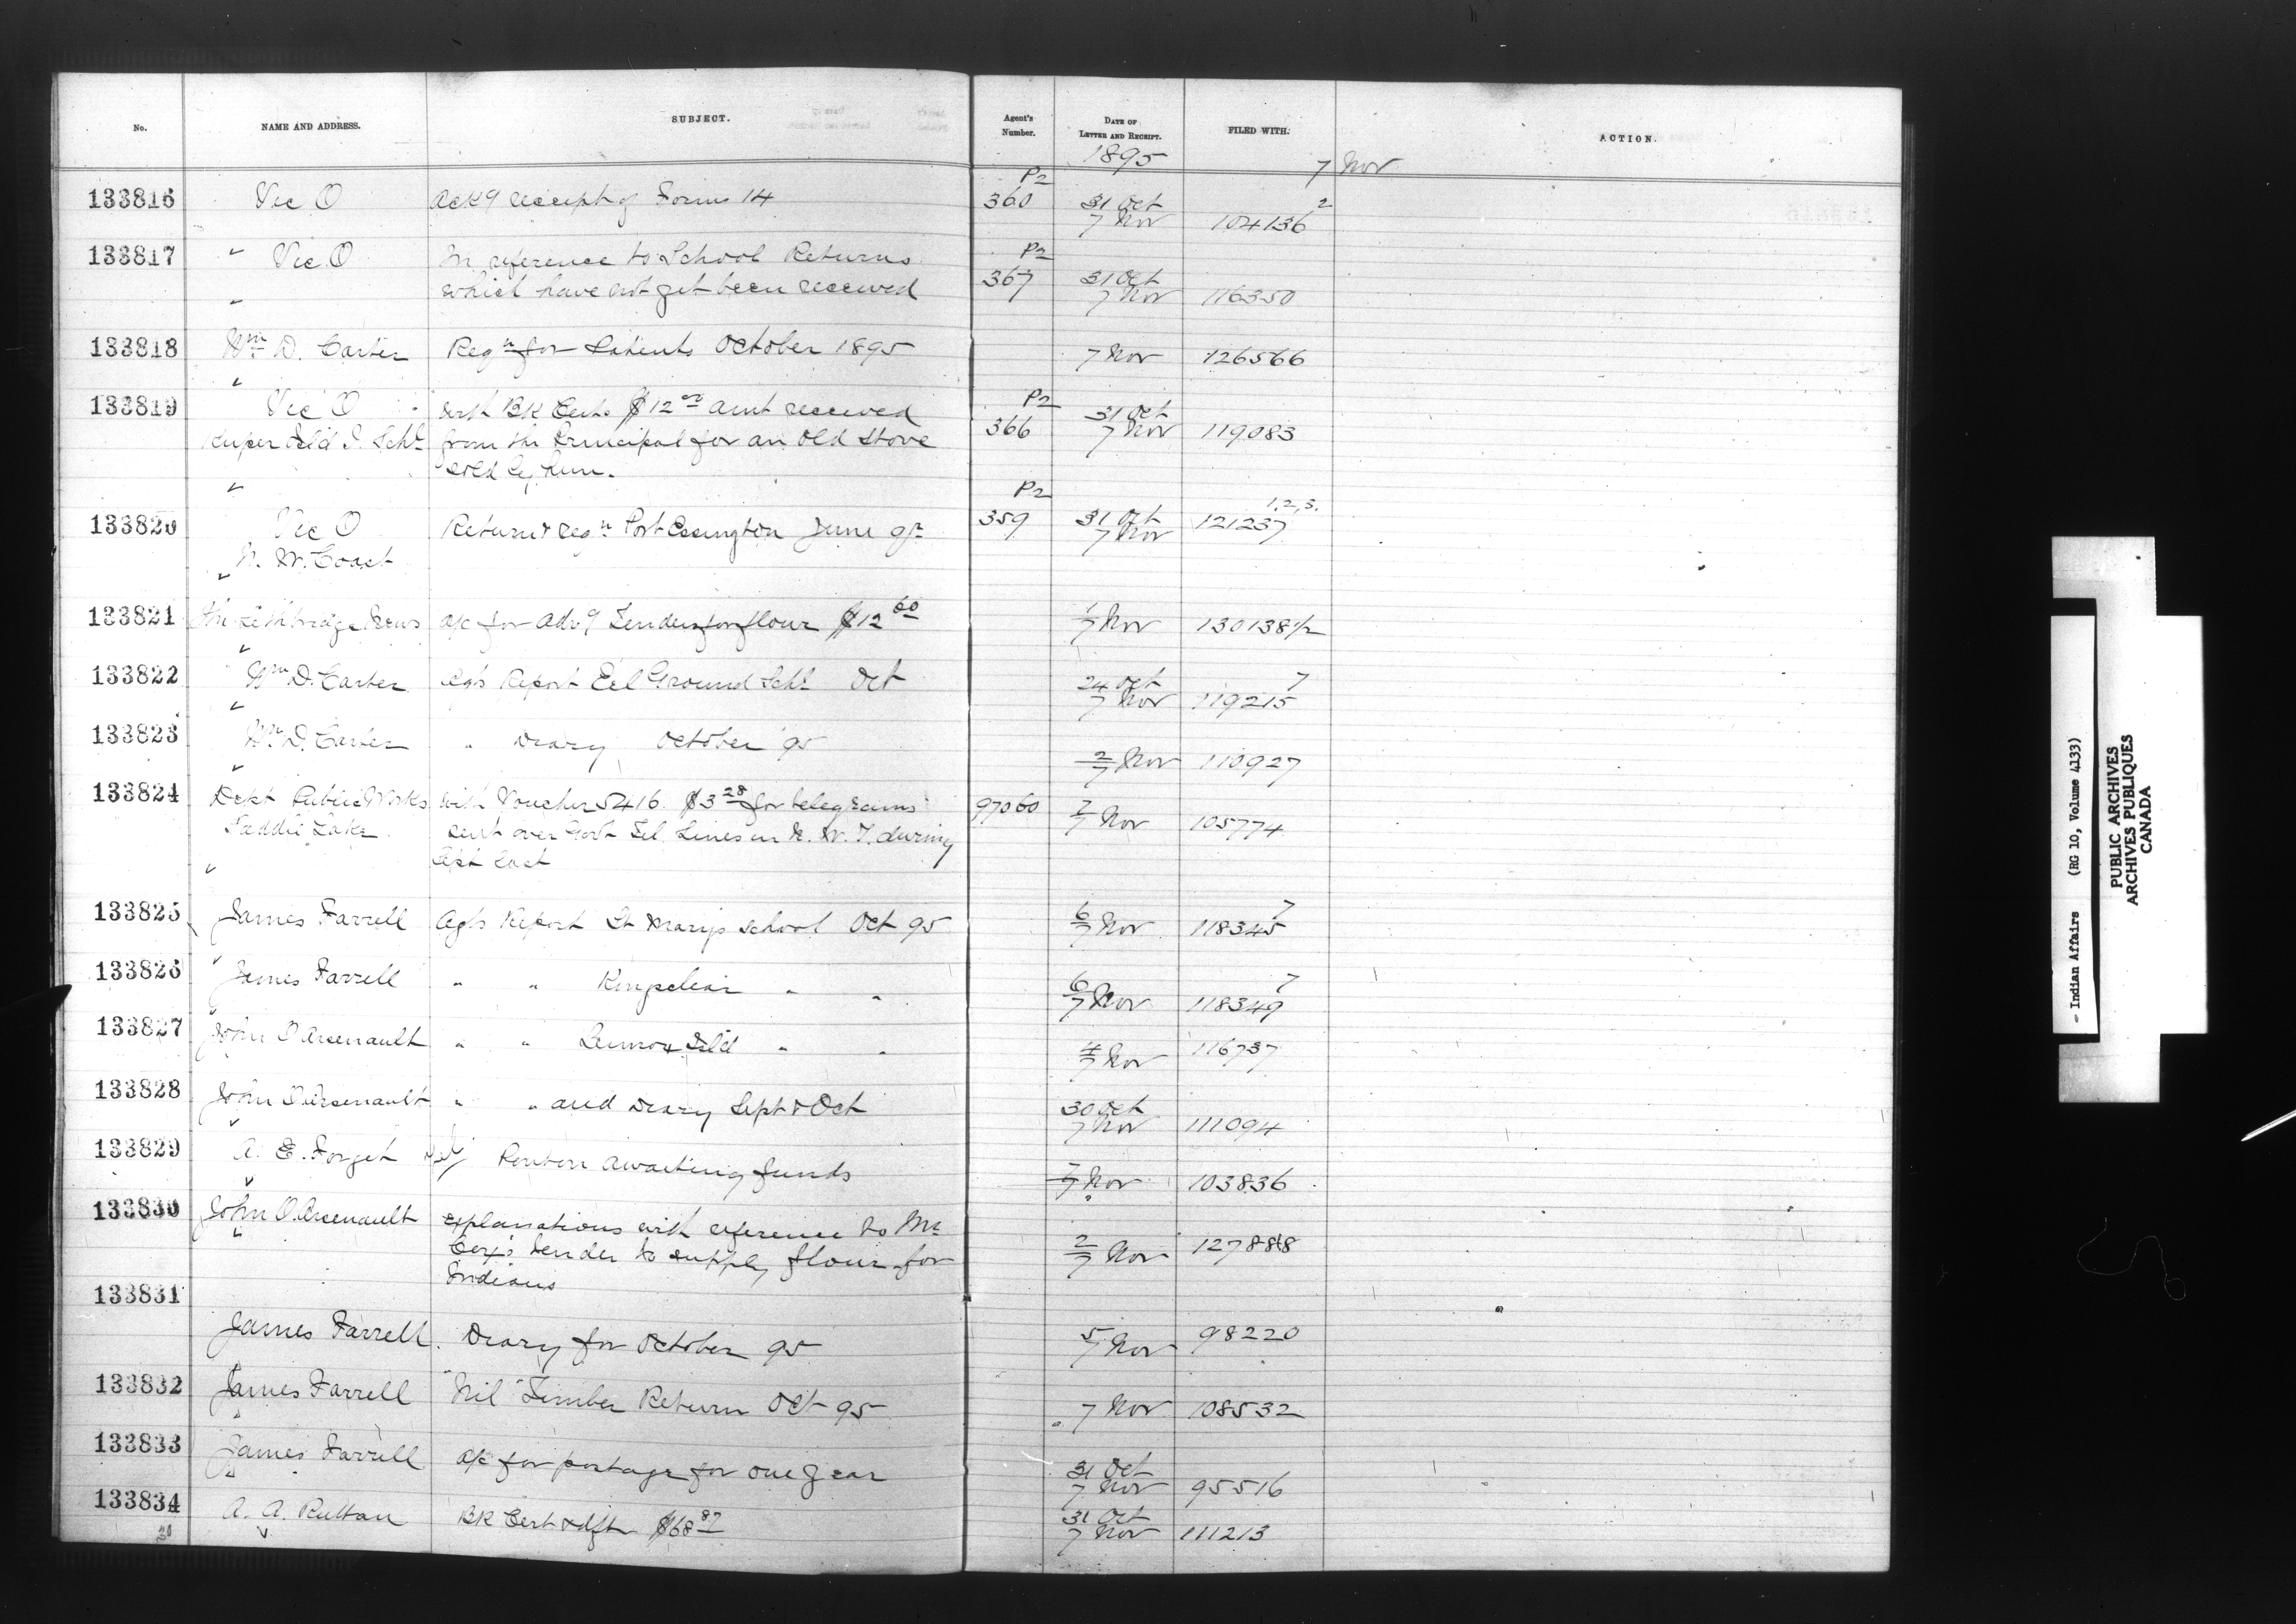 No. NAME AND ADDRESS. SUBJECT. Agent's Number. DATE OF LETTER AND RECEIPT. FILED WITH. ACTION.
1895 7 Nov
133816 Vic O Ackg receipt of Forms 14 P2 360 31 Oct 7 Nov 104136 2
133817 " Vic O In reference to School Returns P2 367 31 Oct 7 Nov 116350
which have not yet been received
133818 Wm D. Carter Reqn for Patients October 1895 7 Nov 126566
133819 Vic O with BK Cert. $12.00 amt received P2 366 31 Oct 7 Nov 119083
Kuper Isld I. Schl from the Principal for an old stove
sold by him.
133820 Vic O Return & reqn Port Essington June qr P2 359 31 Oct 7 Nov 121237 1,2,3.
N. W. Coast
133821 The Lethbridge News a/c for Advg Tenders for flour $12 60 1/7 Nov 130138 1/2
133822 Wm D. Carter Agts Report Eel Ground Schl Oct 24 Oct 7 Nov 119215 7
133823 Wm D. Carter " Diary October 95 2/7 Nov 110927
133824 Dept Public Works with Voucher 5416. $3 28 for telegrams 97060 7/7 Nov 105774
Saddle Lake sent over Govt Tel. Lines in N. W. T. during
Sept last
133825 James Farrell Agts Report St Marys school Oct 95 6/7 Nov 118345 7
133826 James Farrell " " Kingsclear " " 6/7 Nov 118349 7
133827 John O Arsenault " " Lennox Isld " " 4/7 Nov 116737
133828 John O Arsenault " " and Diary Sept & Oct 30 Oct 7 Nov 111094
133829 A. E. Forget awaiting funds 7/7 Nov 103836
133830 John O. Arsenault explanations with reference to Mr 2/7 Nov 127888
tender to supply flour for
Indians
133831
James Farrell. Diary for October 95 5/7 Nov 98220
133832 James Farrell "Nil" Timber Return Oct 95 7 Nov 108532
133833 James Farrell a/c for postage for one year 31 Oct 7 Nov 95516
133834 A. A. Ruttan BK Cert & dft $68 87 31 Oct 7 Nov 111213
20
- Indian Affairs (RG 10, Volume 4133)
PUBLIC ARCHIVES
ARCHIVES PUBLIQUES
CANADA